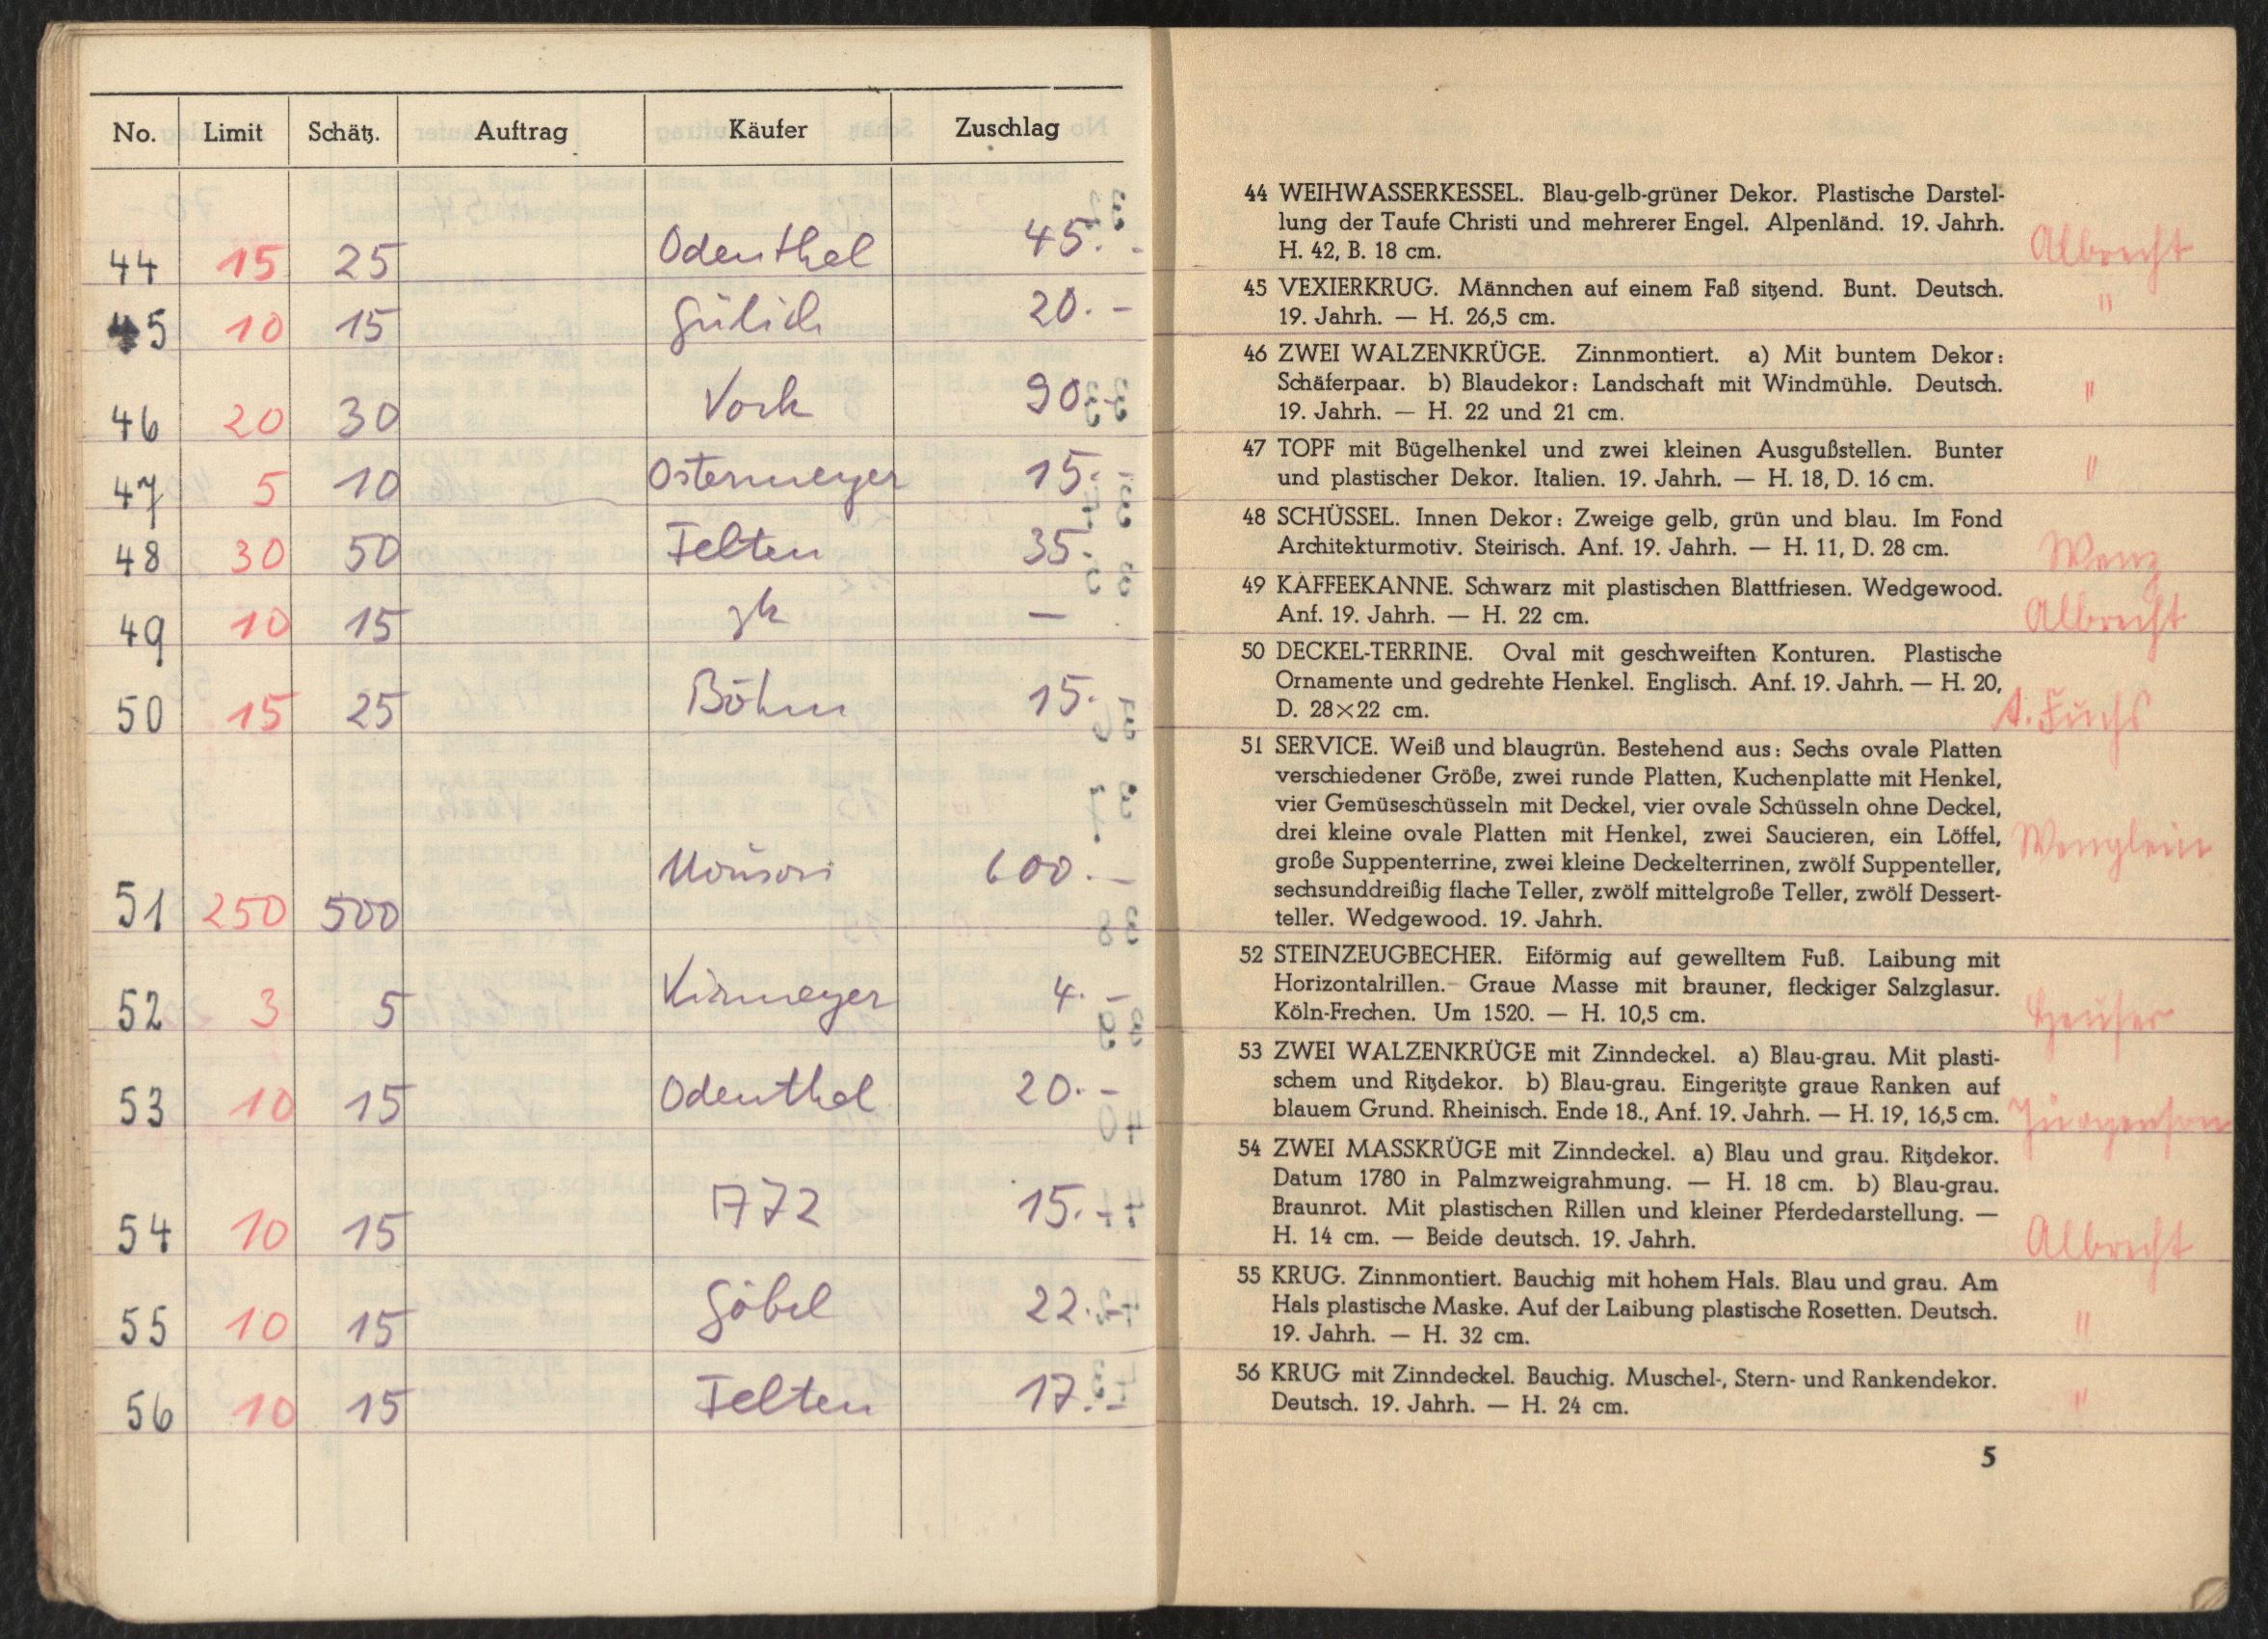 No. Limit Schätz. Auftrag Käufer Zuschlag
44 15 25 Odenthel 45.-
45 10 15 Gülich 20.-
46 20 30 Vork 90.-
47 5 10 Ostermeyer 15.-
48 30 50 Felten 35.-
49 10 15 zk —
50 15 25 Böhm 15.-
51 250 500 600.-
52 3 5 Kirmeyer 4.-
53 10 15 Odenthel 20.-
54 10 15 1772 15.-
55 10 15 Göbel 22.-
56 10 15 Felten 17.-
44 WEIHWASSERKESSEL. Blau-gelb-grüner Dekor. Plastische Darstel-
lung der Taufe Christi und mehrerer Engel. Alpenländ. 19. Jahrh.
H. 42, B. 18 cm. Albrecht
45 VEXIERKRUG. Männchen auf einem Faß sitzend. Bunt. Deutsch. "
19. Jahrh. — H. 26,5 cm.
46 ZWEI WALZENKRÜGE. Zinnmontiert. a) Mit buntem Dekor:
Schäferpaar. b) Blaudekor: Landschaft mit Windmühle. Deutsch. "
19. Jahrh. — H. 22 und 21 cm.
47 TOPF mit Bügelhenkel und zwei kleinen Ausgußstellen. Bunter "
und plastischer Dekor. Italien. 19. Jahrh. — H. 18, D. 16 cm.
48 SCHÜSSEL. Innen Dekor: Zweige gelb, grün und blau. Im Fond
Architekturmotiv. Steirisch. Anf. 19. Jahrh. — H. 11, D. 28 cm. Wenz
49 KAFFEEKANNE. Schwarz mit plastischen Blattfriesen. Wedgewood.
Anf. 19. Jahrh. — H. 22 cm. Albrecht
50 DECKEL-TERRINE. Oval mit geschweiften Konturen. Plastische
Ornamente und gedrehte Henkel. Englisch. Anf. 19. Jahrh. — H. 20,
D. 28×22 cm. A. Fuchs
51 SERVICE. Weiß und blaugrün. Bestehend aus: Sechs ovale Platten
verschiedener Größe, zwei runde Platten, Kuchenplatte mit Henkel,
vier Gemüseschüsseln mit Deckel, vier ovale Schüsseln ohne Deckel,
drei kleine ovale Platten mit Henkel, zwei Saucieren, ein Löffel, Wenglein
große Suppenterrine, zwei kleine Deckelterrinen, zwölf Suppenteller,
sechsunddreißig flache Teller, zwölf mittelgroße Teller, zwölf Dessert-
teller. Wedgewood. 19. Jahrh.
52 STEINZEUGBECHER. Eiförmig auf gewelltem Fuß. Laibung mit
Horizontalrillen. Graue Masse mit brauner, fleckiger Salzglasur.
Köln-Frechen. Um 1520. — H. 10,5 cm. Heuser
53 ZWEI WALZENKRÜGE mit Zinndeckel. a) Blau-grau. Mit plasti-
schem und Ritzdekor. b) Blau-grau. Eingeritzte graue Ranken auf
blauem Grund. Rheinisch. Ende 18., Anf. 19. Jahrh. — H. 19, 16,5 cm. Jürgenson
54 ZWEI MASSKRÜGE mit Zinndeckel. a) Blau und grau. Ritzdekor.
Datum 1780 in Palmzweigrahmung. — H. 18 cm. b) Blau-grau.
Braunrot. Mit plastischen Rillen und kleiner Pferdedarstellung. —
H. 14 cm. — Beide deutsch. 19. Jahrh. Albrecht
55 KRUG. Zinnmontiert. Bauchig mit hohem Hals. Blau und grau. Am
Hals plastische Maske. Auf der Laibung plastische Rosetten. Deutsch. "
19. Jahrh. — H. 32 cm.
56 KRUG mit Zinndeckel. Bauchig. Muschel-, Stern- und Rankendekor.
Deutsch. 19. Jahrh. — H. 24 cm. "
5